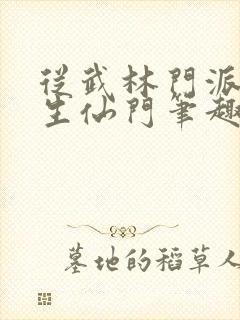 從武林門派
生仙門筆趣
墓地的稻草人